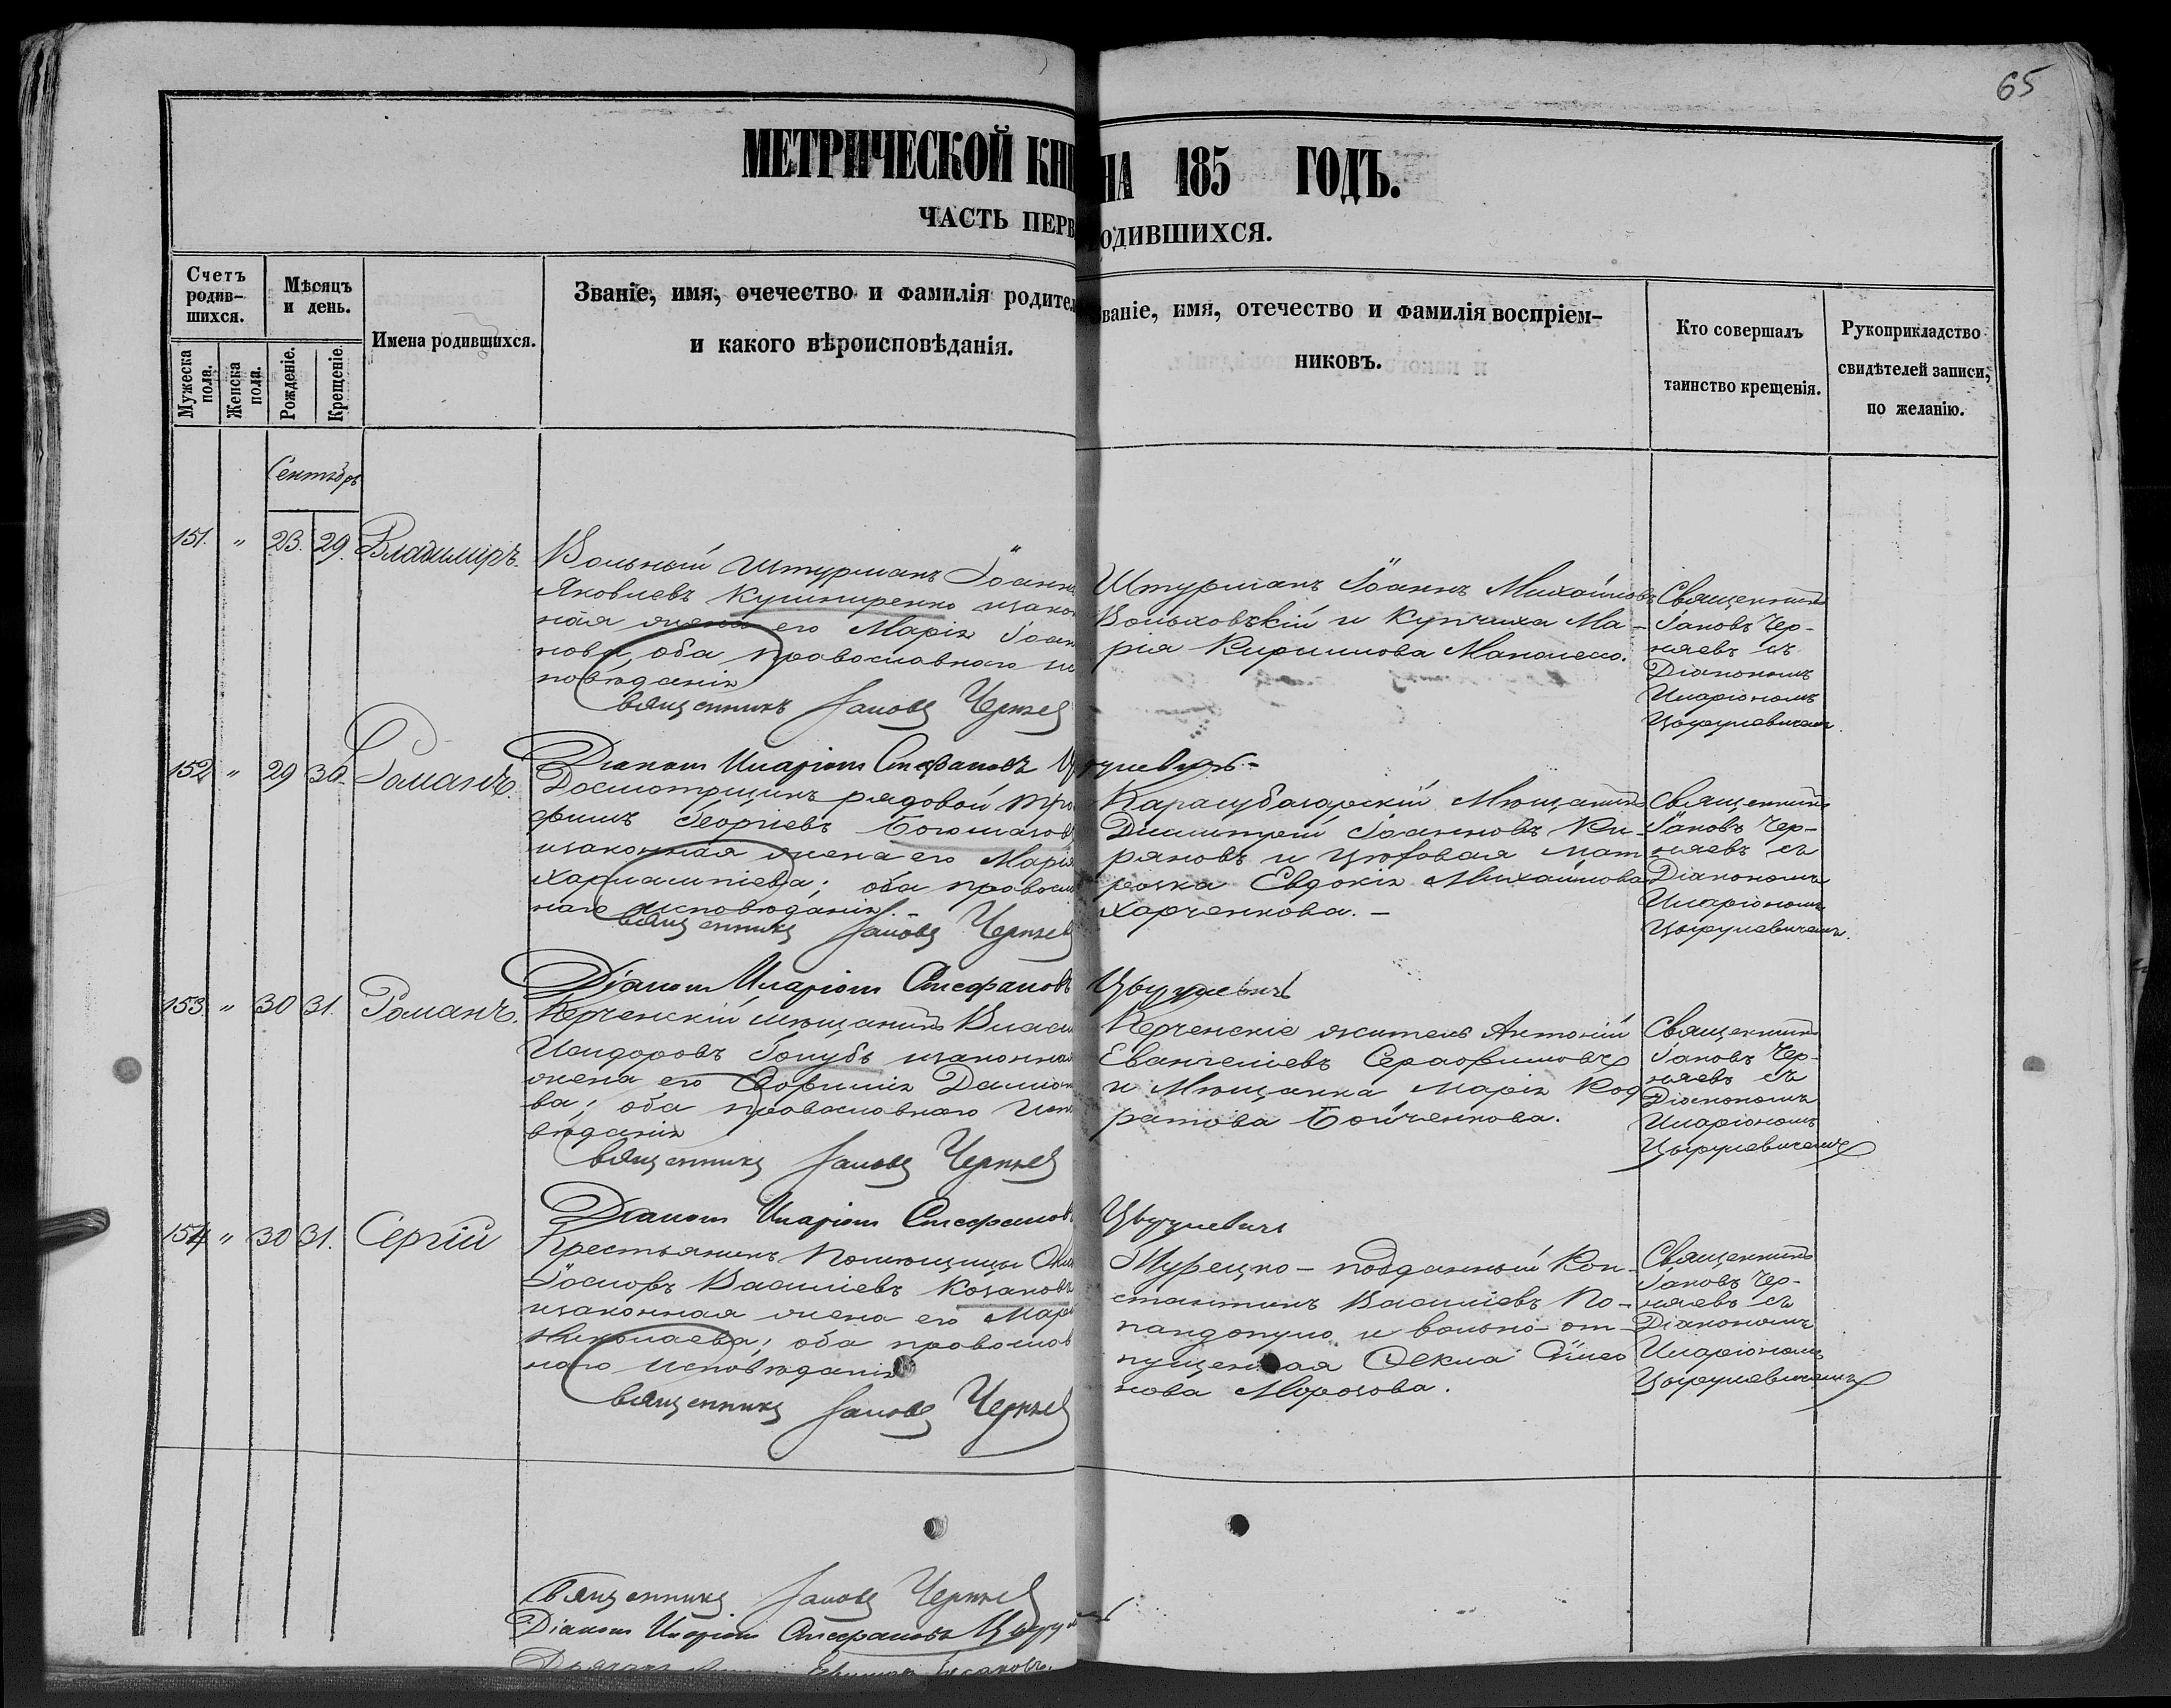 65
МЕТРИЧЕСКОЙ КНИ НА 185 ГОДЪ.
ЧАСТЬ ПЕРВ ОДИВШИХСЯ.
Счетъ родив-шихся.
Мужеска пола.
Женска пола.
Мѣсяцъ и день.
Рожденіе.
Крещеніе.
Имена родившихся.
Званіе, имя, очечество и фамилія родител
и какого вѣроисповѣданія.
ваніе, имя, отечество и фамилія воспріем-
никовъ.
Кто совершалъ
таинство крещенія.
Рукоприкладство
свидѣтелей записи,
по желанію.
Сентябрь
151. " 23. 29. Владиміръ.
Вольный Штурманъ Іоаннъ
Яковлевъ Кушниренко изакон
ная жена его Марія Іоан
нова, оба православного ис
повѣданія
Священникъ Іаковъ Черняев
Штурманъ Іоаннъ Михайловъ
Вольховскій и Купчиха Ма-
рія Кирилова Маналено.
Священникъ
Іаковъ Чер-
няевъ съ
Діакономъ
Иларіономъ
Цыруневичемъ.
Діаконъ Иларіонъ Стефановъ
152 " 29 30. Романъ.
Досмотрщикъ рядовой Тро
фимъ Георгіевъ
изаконная жена его Марія
Харлампіева; оба православ
наго исповѣданія.
Священникъ Іаковъ Черняев
Карасубазарскій Мѣщанинъ
Димитрій Іоанновъ Ки-
ряновъ и Мат
роска Евдокія Михайлова
Харченкова. -
Священникъ
Іаковъ Чер-
няевъ съ
Діакономъ
Иларіономъ
Цыруневичемъ.
Діаконъ Иларіонъ Стефановъ
153. " 30 31. Романъ.
Керченскій мѣщанинъ Власи
Исидоровъ Голубъ изаконная
жена его Евфимія Даміан
ва; оба православного испо
вѣданія
Священникъ Іаковъ Черняев
Керченскіе житель Антоній
Евангеліевъ Серафимовъ
и Мѣщанка Марія Код
ратова Бойченкова.
Священникъ
Іаковъ Чер-
няевъ съ
Діакономъ
Иларіономъ
Цыруневичемъ
Діаконъ Иларіонъ Стефановъ
154 " 30 31. Сергій
Крестьянинъ Помѣщицы
Іосифъ Василіевъ Козаковъ
изаконная жена его Марѳ
Николаева; оба православ
наго исповѣданія
Священникъ Іаковъ Черняев
Турецко-подданный Кон-
стантинъ Василіевъ По-
пандопуло и вольно-от-
пущенная Ѳекла
нова Морозова.
Священникъ
Іаковъ Чер-
няевъ съ
Діакономъ
Иларіономъ
Цыруневичемъ
Священникъ Іаковъ Черняев
Діаконъ Иларіонъ Стефановъ